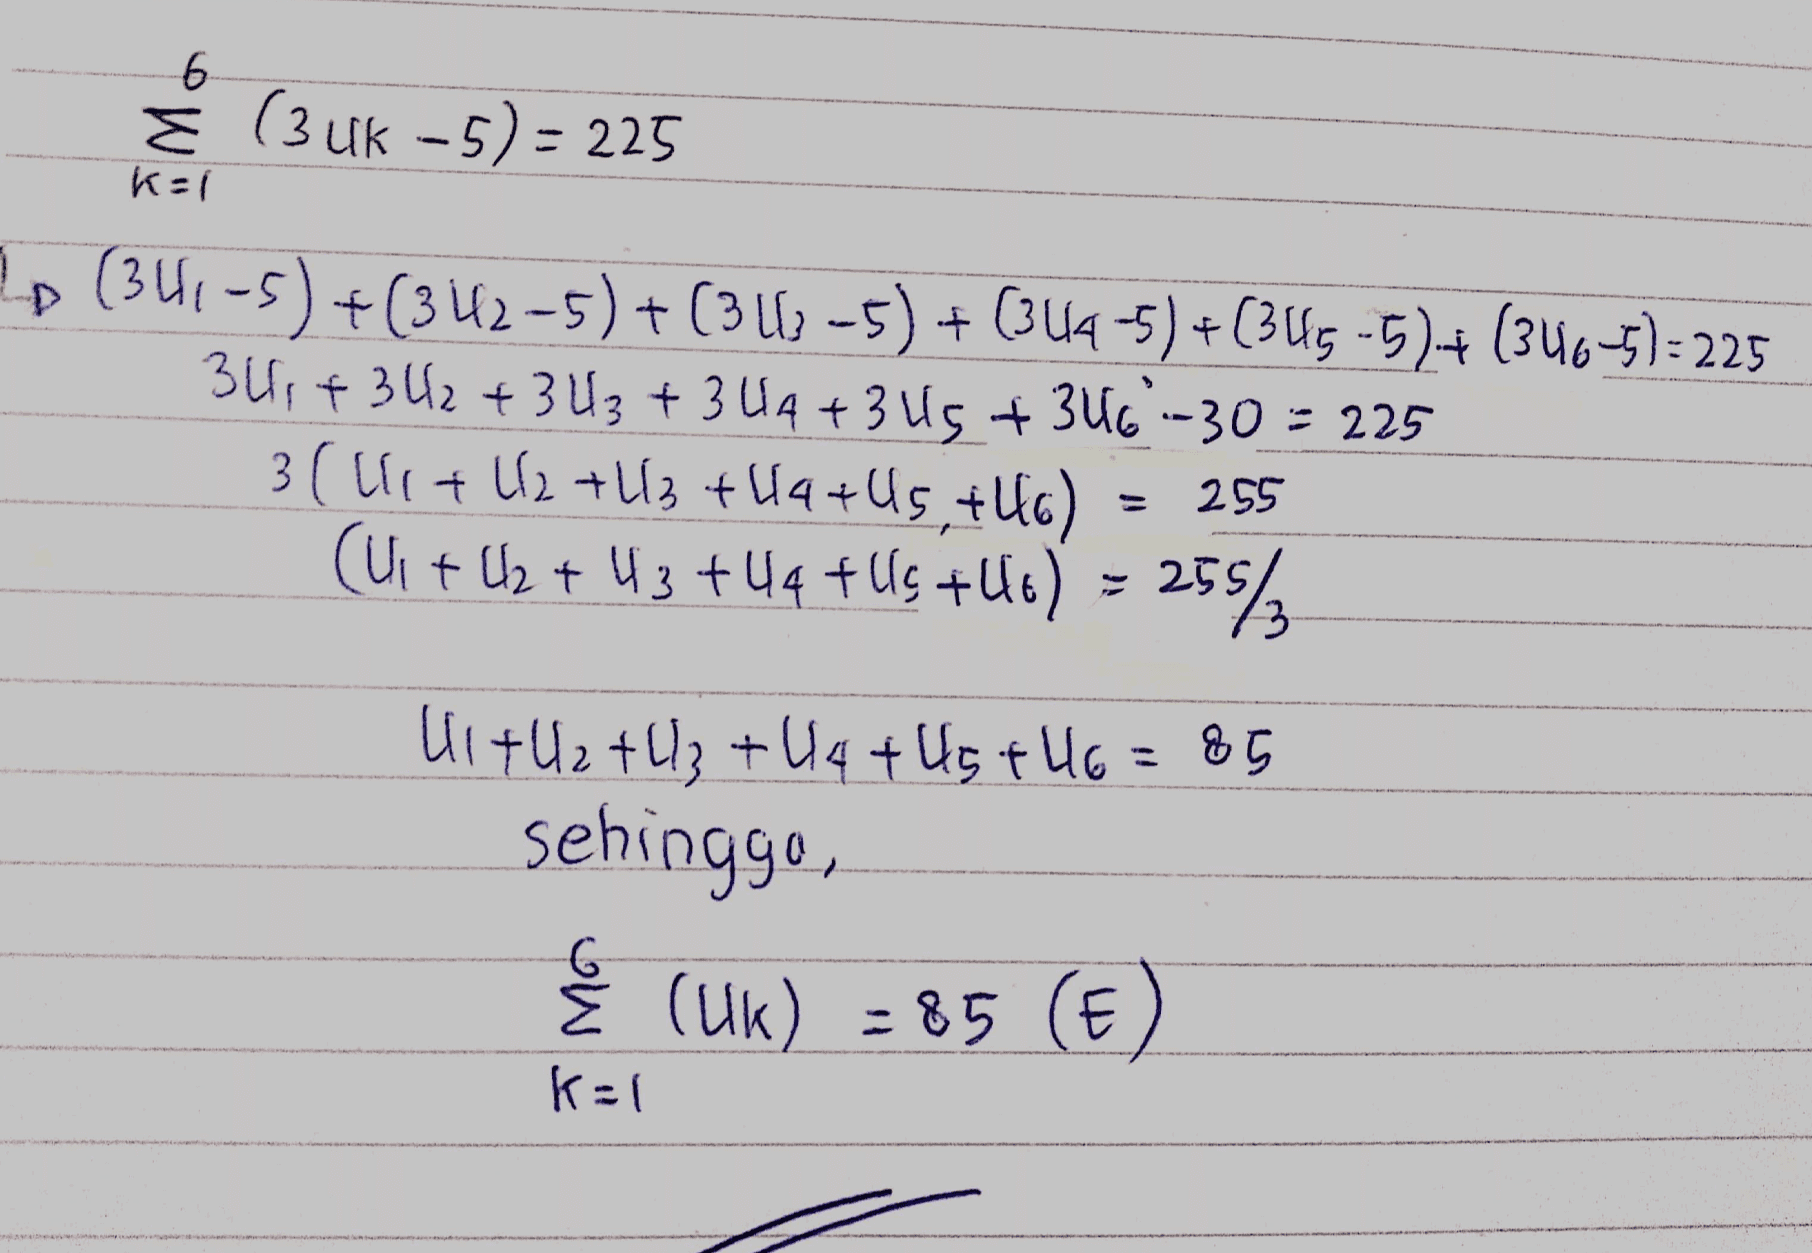 6
Σ (3Uk - 5) = 225
K=1
(3U1-5) + (3U2-5) + (3U3-5) + (3U4-5) + (3U5-5) + (3U6-5) = 225
3U1 + 3U2 + 3U3 + 3U4 + 3U5 + 3U6 - 30 = 225
3(U1 + U2 + U3 + U4 + U5 + U6) = 255
(U1 + U2 + U3 + U4 + U5 + U6) = 255/3
U1 + U2 + U3 + U4 + U5 + U6 = 85
sehingga,
6
Σ (Uk) = 85 (E)
K=1